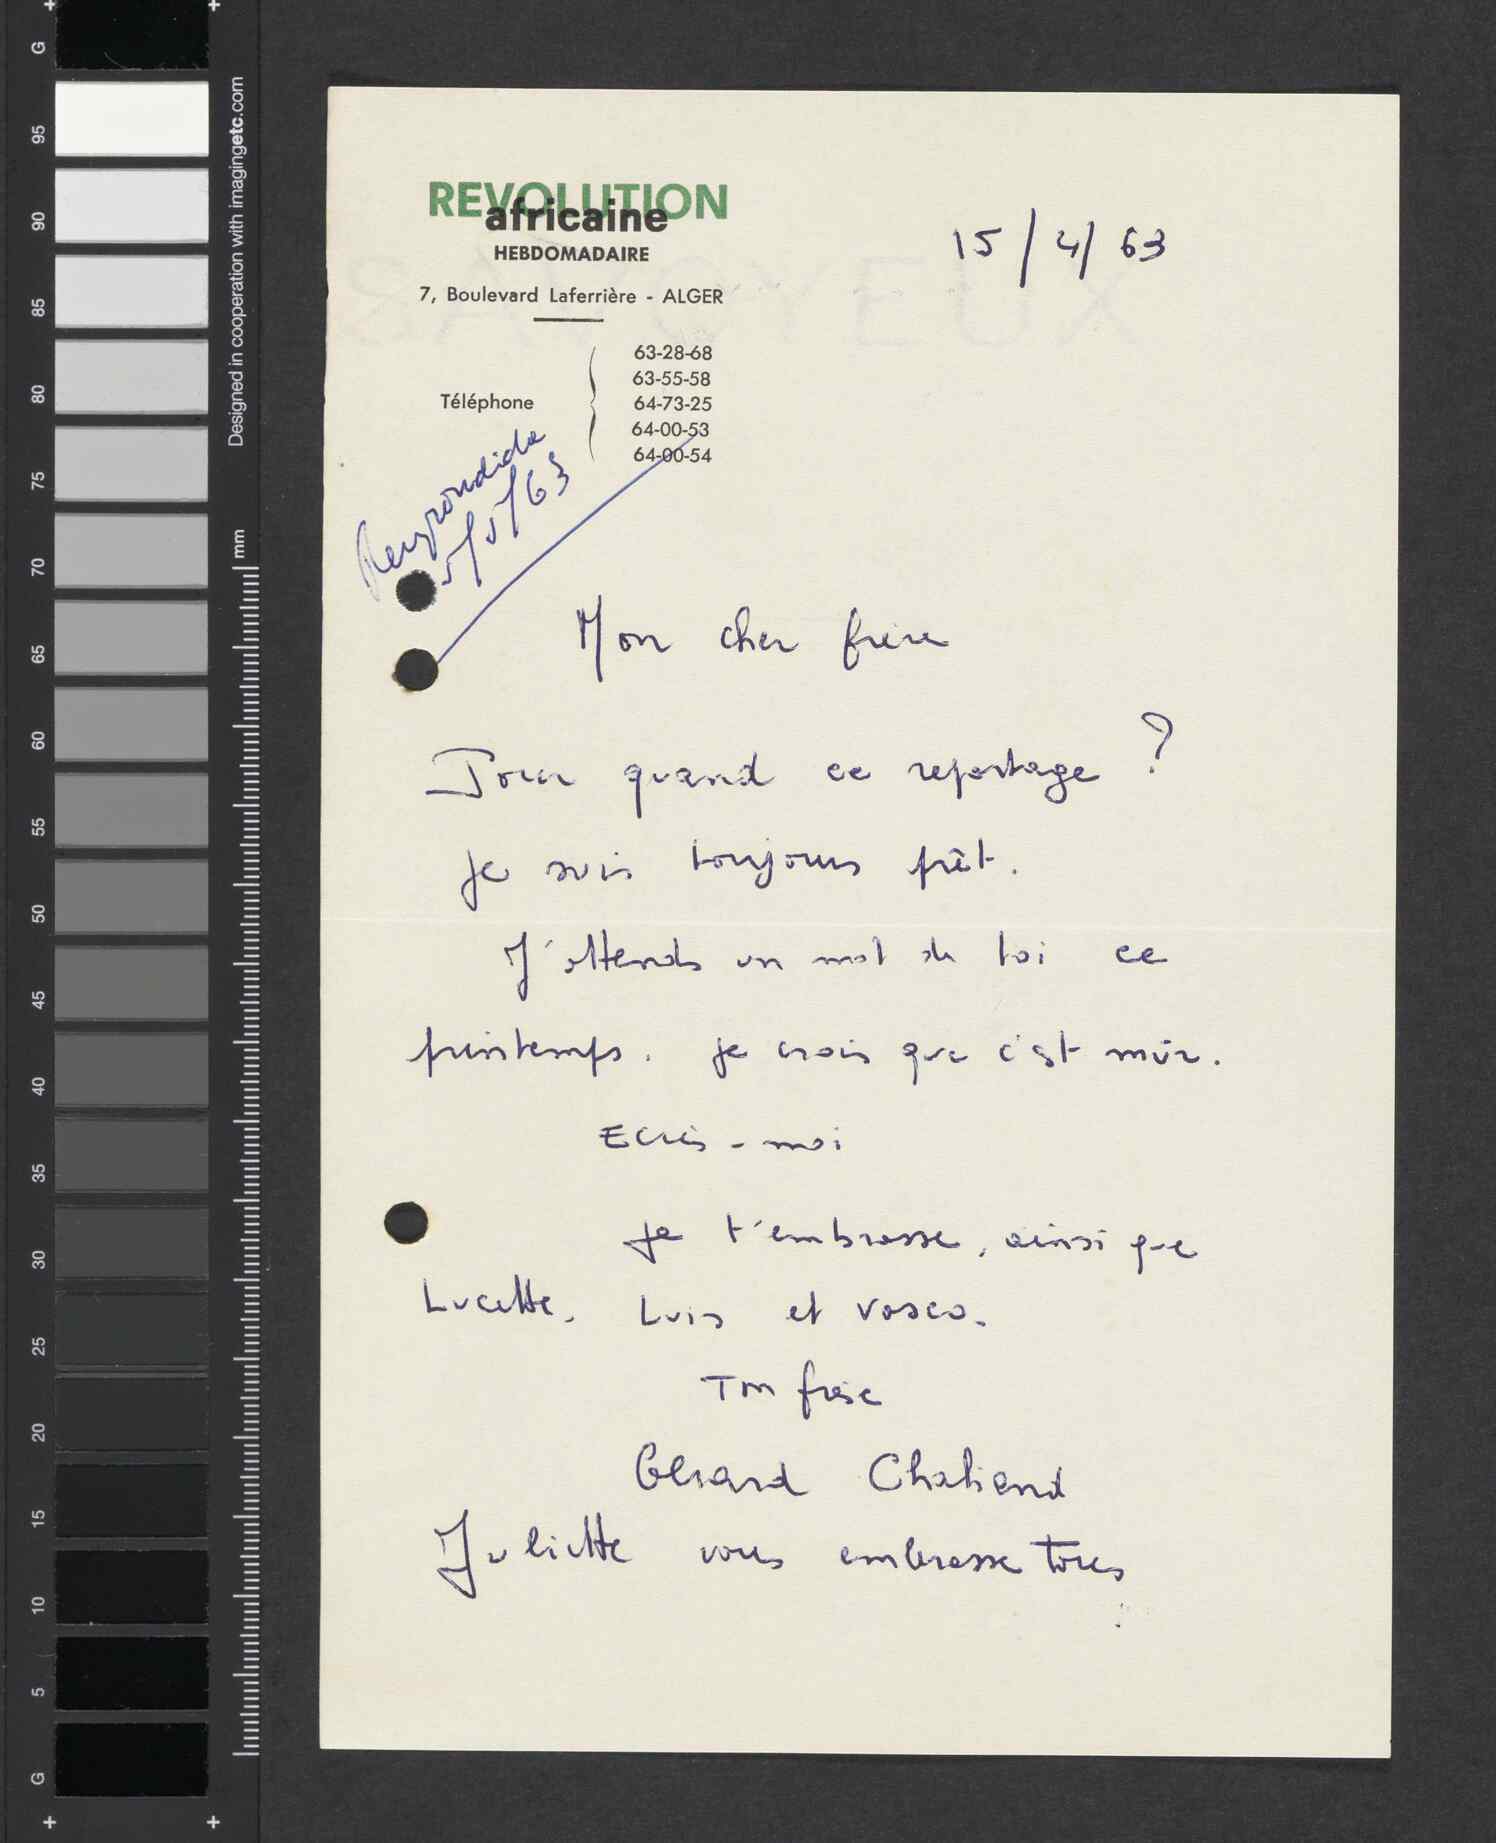 REVOLUTION
africaine
HEBDOMADAIRE
7, Boulevard Laferrière - ALGER
15/4/63
Téléphone
63-28-68
63-55-58
64-73-25
64-00-53
64-00-54
Respondida
5/5/63
Mon cher frère
Pour quand ce reportage ?
Je suis toujours prêt.
J'attends un mot de toi ce
printemps. Je crois que c'est mûr.
Ecris-moi
Je t'embrasse, ainsi que
Lucette, Luis et Vasco.
Ton frère
Gérard Chaliand
Juliette vous embrasse tous
SAVOYEUX
Designed in cooperation with imagingetc.com
mm
G
95
90
85
80
75
70
65
60
55
50
45
40
35
30
25
20
15
10
5
G